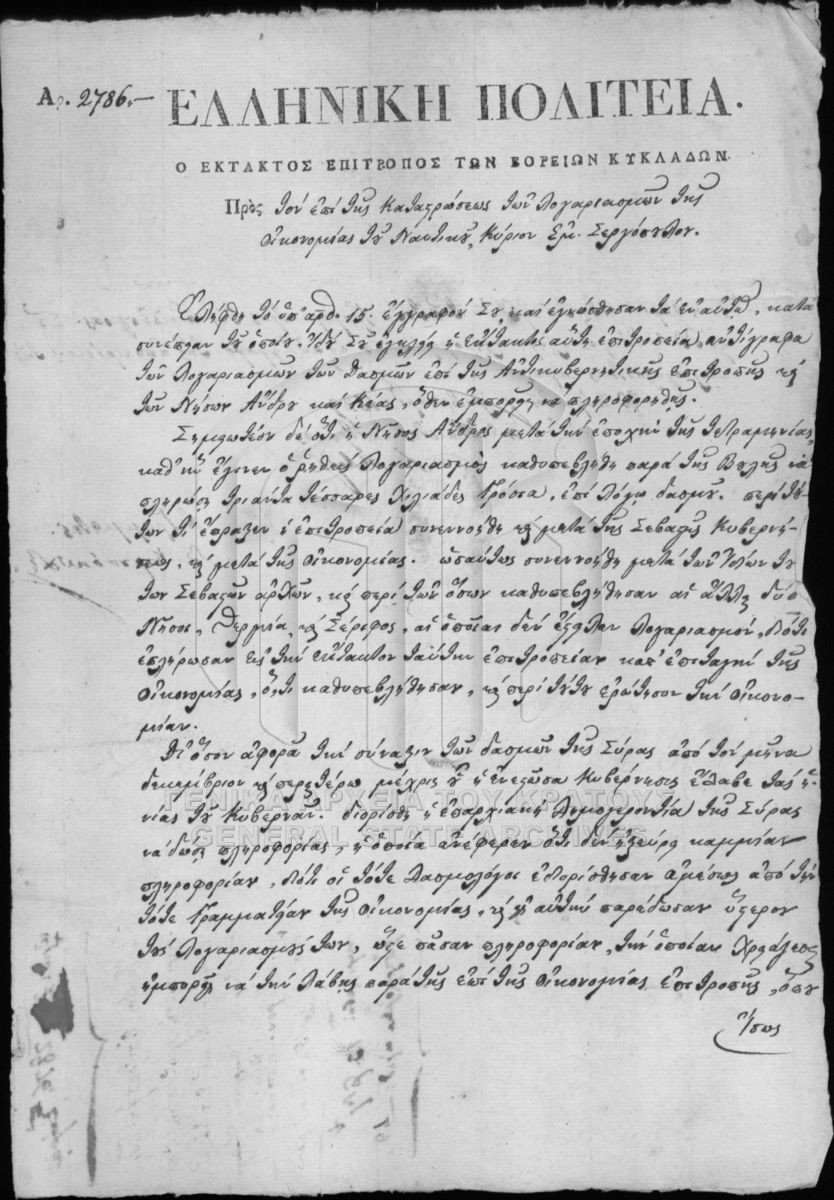 Αρ. 2786.—
ΕΛΛΗΝΙΚΗ ΠΟΛΙΤΕΙΑ.
Ο ΕΚΤΑΚΤΟΣ ΕΠΙΤΡΟΠΟΣ ΤΩΝ ΒΟΡΕΙΩΝ ΚΥΚΛΑΔΩΝ
Πρὸς τὸν ἐπὶ τῆς καταστρώσεως τῶν λογαριασμῶν τῆς
οἰκονομίας τοῦ Ναυτικοῦ, Κύριον Ἐμ. Σεργόπουλον.
Ἐλήφθη τὸ ὑπ' ἀρθ. 15. ἔγγραφόν Σου, καὶ ἐγνώσθησαν τὰ ἐν αὐτῷ, κατὰ
συνέπειαν τοῦ ὁποίου, ἰδοὺ Σοῦ ἐγκλείει ἡ ἔκτακτος αὕτη ἐπιτροπεία, ἀντίγραφα
τῶν λογαριασμῶν τῶν δασμῶν ἐπὶ τῆς Ἀντικυβερνητικῆς ἐπιτροπῆς καὶ
τῶν Νήσων Ἄνδρου καὶ Κέας, ὅθεν ἐμπορεῖς νὰ πληροφορηθῇς.
Σημειωτέον δὲ ὅτι ἡ Νῆσος Ἄνδρος μετὰ τὴν ἐποχὴν τῆς τετραμηνίας,
καθ' ἣν ἔγινεν ὁ ῥηθεὶς λογαριασμὸς καθυπεβλήθη παρὰ τῆς Βουλῆς νὰ
πληρώσῃ τριάντα τέσσαρες χιλιάδες γρόσια, ἐπὶ λόγῳ δασμοῦ. περὶ τού-
των τί ἔπραξεν ἡ ἐπιτροπεία συνεννοήθη καὶ μετὰ τῆς Σεβαστῆς Κυβερνή-
σεως, καὶ μετὰ τῆς οἰκονομίας. ὡσαύτως συνεννοήθη μετὰ τῶν ἰδίων τού-
των Σεβαστῶν ἀρχῶν, καὶ περὶ τῶν ὅσων καθυπεβλήθησαν αἱ ἄλλαι δύο
Νῆσοι, Θερμιὰ, καὶ Σέριφος, αἱ ὁποῖαι δὲν ἔστειλαν λογαριασμὸν, διότι
ἐπλήρωσαν εἰς τὴν ἔκτακτον ταύτην ἐπιτροπείαν κατ' ἐπιταγὴν τῆς
οἰκονομίας, ὅ,τι καθυπεβλήθησαν, καὶ περὶ τούτου ἐρώτησον τὴν οἰκονο-
μίαν.
Δι' ὅσον ἀφορᾷ τὴν σύναξιν τῶν δασμῶν τῆς Σύρας ἀπὸ τὸν μῆνα
δεκέμβριον καὶ περετέρω μέχρις οὗ ἡ ἐνεστῶσα Κυβέρνησις ἔλαβε τὰς ἡ-
νίας τοῦ Κυβερνᾶν. διωρίσθη ἡ ἐπαρχιακὴ Δημογεροντία τῆς Σύρας
νὰ δώσῃ πληροφορίας, ἡ ὁποία ἀνέφερεν ὅτι δὲν ἠξεύρει καμμίαν
πληροφορίαν, διότι οἱ τότε Δασμολόγοι ἐδιορίσθησαν ἀμέσως ἀπὸ τὴν
τότε Γραμματείαν τῆς οἰκονομίας, καὶ εἰς αὐτὴν παρέδωσαν ὕστερον
τοὺς λογαριασμούς των, ὥστε πᾶσαν πληροφορίαν, τὴν ὁποίαν χρειάζεσαι
ἐμπορεῖς νὰ τὴν λάβῃς παρὰ τῆς ἐπὶ τῆς οἰκονομίας ἐπιτροπῆς, ὅπου
ἴσως
ΓΕΝΙΚΑ ΑΡΧΕΙΑ ΤΟΥ ΚΡΑΤΟΥΣ
GENERAL STATE ARCHIVES